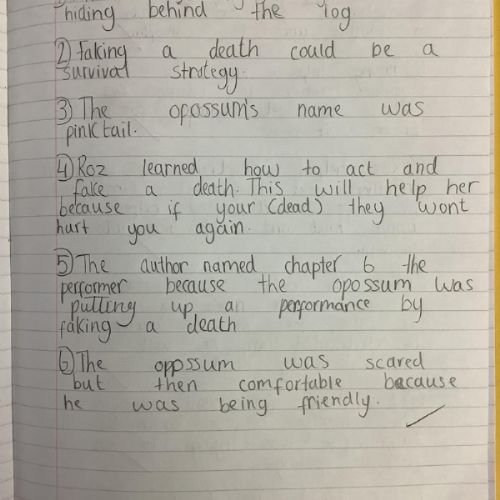 hiding behind the log
2) faking a death could be a
survival strategy.
3) The opossum's name was
pink tail.
4) Roz learned how to act and
fake a death. This will help her
because if your (dead) they wont
hurt you again.
5) The author named chapter 6 the
performer because the opossum was
putting up an performance by
faking a death
6) The oppssum was scared
but then comfortable because
he was being friendly.